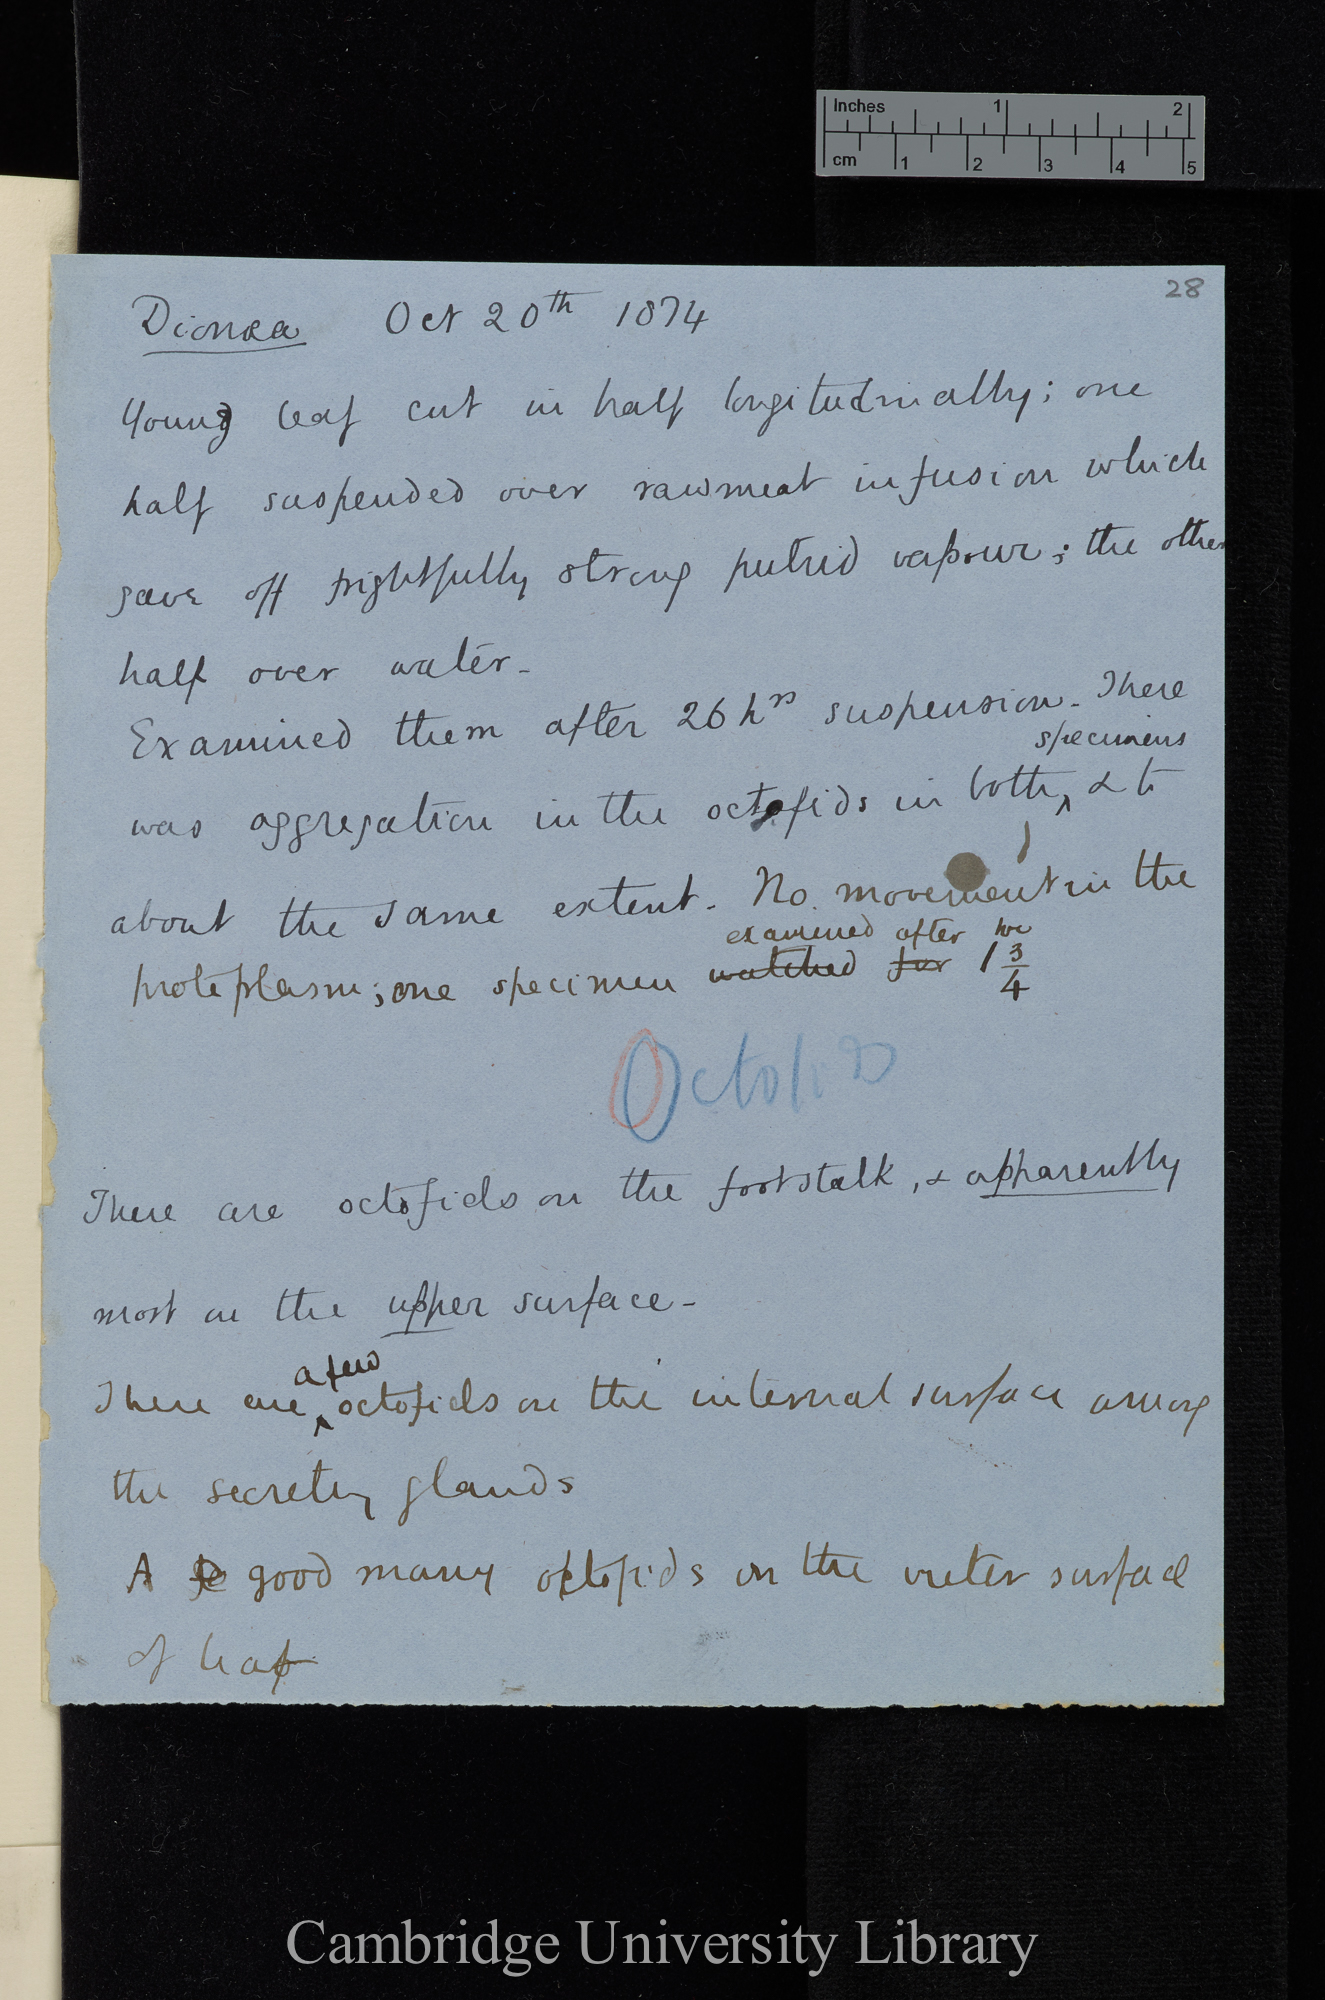 Inches 1 2
cm 1 2 3 4 5
28
Dionœa Oct 20th 1874
Young leaf cut in half longitudinally; one
half suspended over raw meat infusion which
gave off frightfully strong putrid vapour; the other
half over water -
Examined them after 26 hrs suspension. There
specimens
was aggregation in the octofids in both, & to
about the same extent. No movement in the
examined after
protoplasm; one specimen watched for 1 3/4
Octofid
There are octofids on the footstalk, & apparently
most on the upper surface -
a few
There are octofids on the internal surface among
the secreting glands
A good many octofids on the outer surface
of leaf
Cambridge University Library